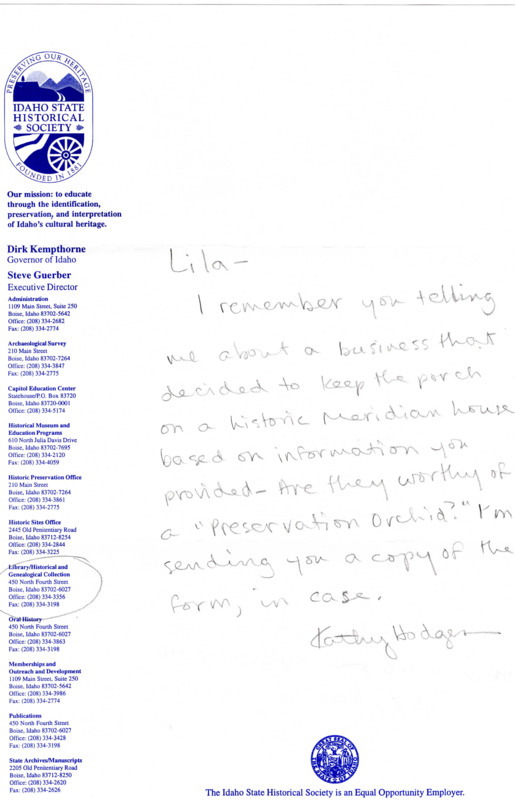 PRESERVING OUR HERITAGE
IDAHO STATE
HISTORICAL
SOCIETY
FOUNDED IN 1881
Our mission: to educate
through the identification,
preservation, and interpretation
of Idaho's cultural heritage.
Dirk Kempthorne
Governor of Idaho
Steve Guerber
Executive Director
Administration
1109 Main Street, Suite 250
Boise, Idaho 83702-5642
Office: (208) 334-2682
Fax: (208) 334-2774
Archaeological Survey
210 Main Street
Boise, Idaho 83702-7264
Office: (208) 334-3847
Fax: (208) 334-2775
Capitol Education Center
Statehouse/P.O. Box 83720
Boise, Idaho 83720-0001
Office: (208) 334-5174
Historical Museum and
Education Programs
610 North Julia Davis Drive
Boise, Idaho 83702-7695
Office: (208) 334-2120
Fax: (208) 334-4059
Historic Preservation Office
210 Main Street
Boise, Idaho 83702-7264
Office: (208) 334-3861
Fax: (208) 334-2775
Historic Sites Office
2445 Old Penitentiary Road
Boise, Idaho 83712-8254
Office: (208) 334-2844
Fax: (208) 334-3225
Library/Historical and
Genealogical Collection
450 North Fourth Street
Boise, Idaho 83702-6027
Office: (208) 334-3356
Fax: (208) 334-3198
Oral History
450 North Fourth Street
Boise, Idaho 83702-6027
Office: (208) 334-3863
Fax: (208) 334-3198
Memberships and
Outreach and Development
1109 Main Street, Suite 250
Boise, Idaho 83702-5642
Office: (208) 334-3986
Fax: (208) 334-2774
Publications
450 North Fourth Street
Boise, Idaho 83702-6027
Office: (208) 334-3428
Fax: (208) 334-3198
State Archives/Manuscripts
2205 Old Penitentiary Road
Boise, Idaho 83712-8250
Office: (208) 334-2620
Fax: (208) 334-2626
Lila-
I remember you telling
me about a business that
decided to keep the porch
on a historic Meridian house
based on information you
provided- Are they worthy of
a "Preservation Orchid?" I'm
sending you a copy of the
form, in case.
Kathy Hodges
The Idaho State Historical Society is an Equal Opportunity Employer.